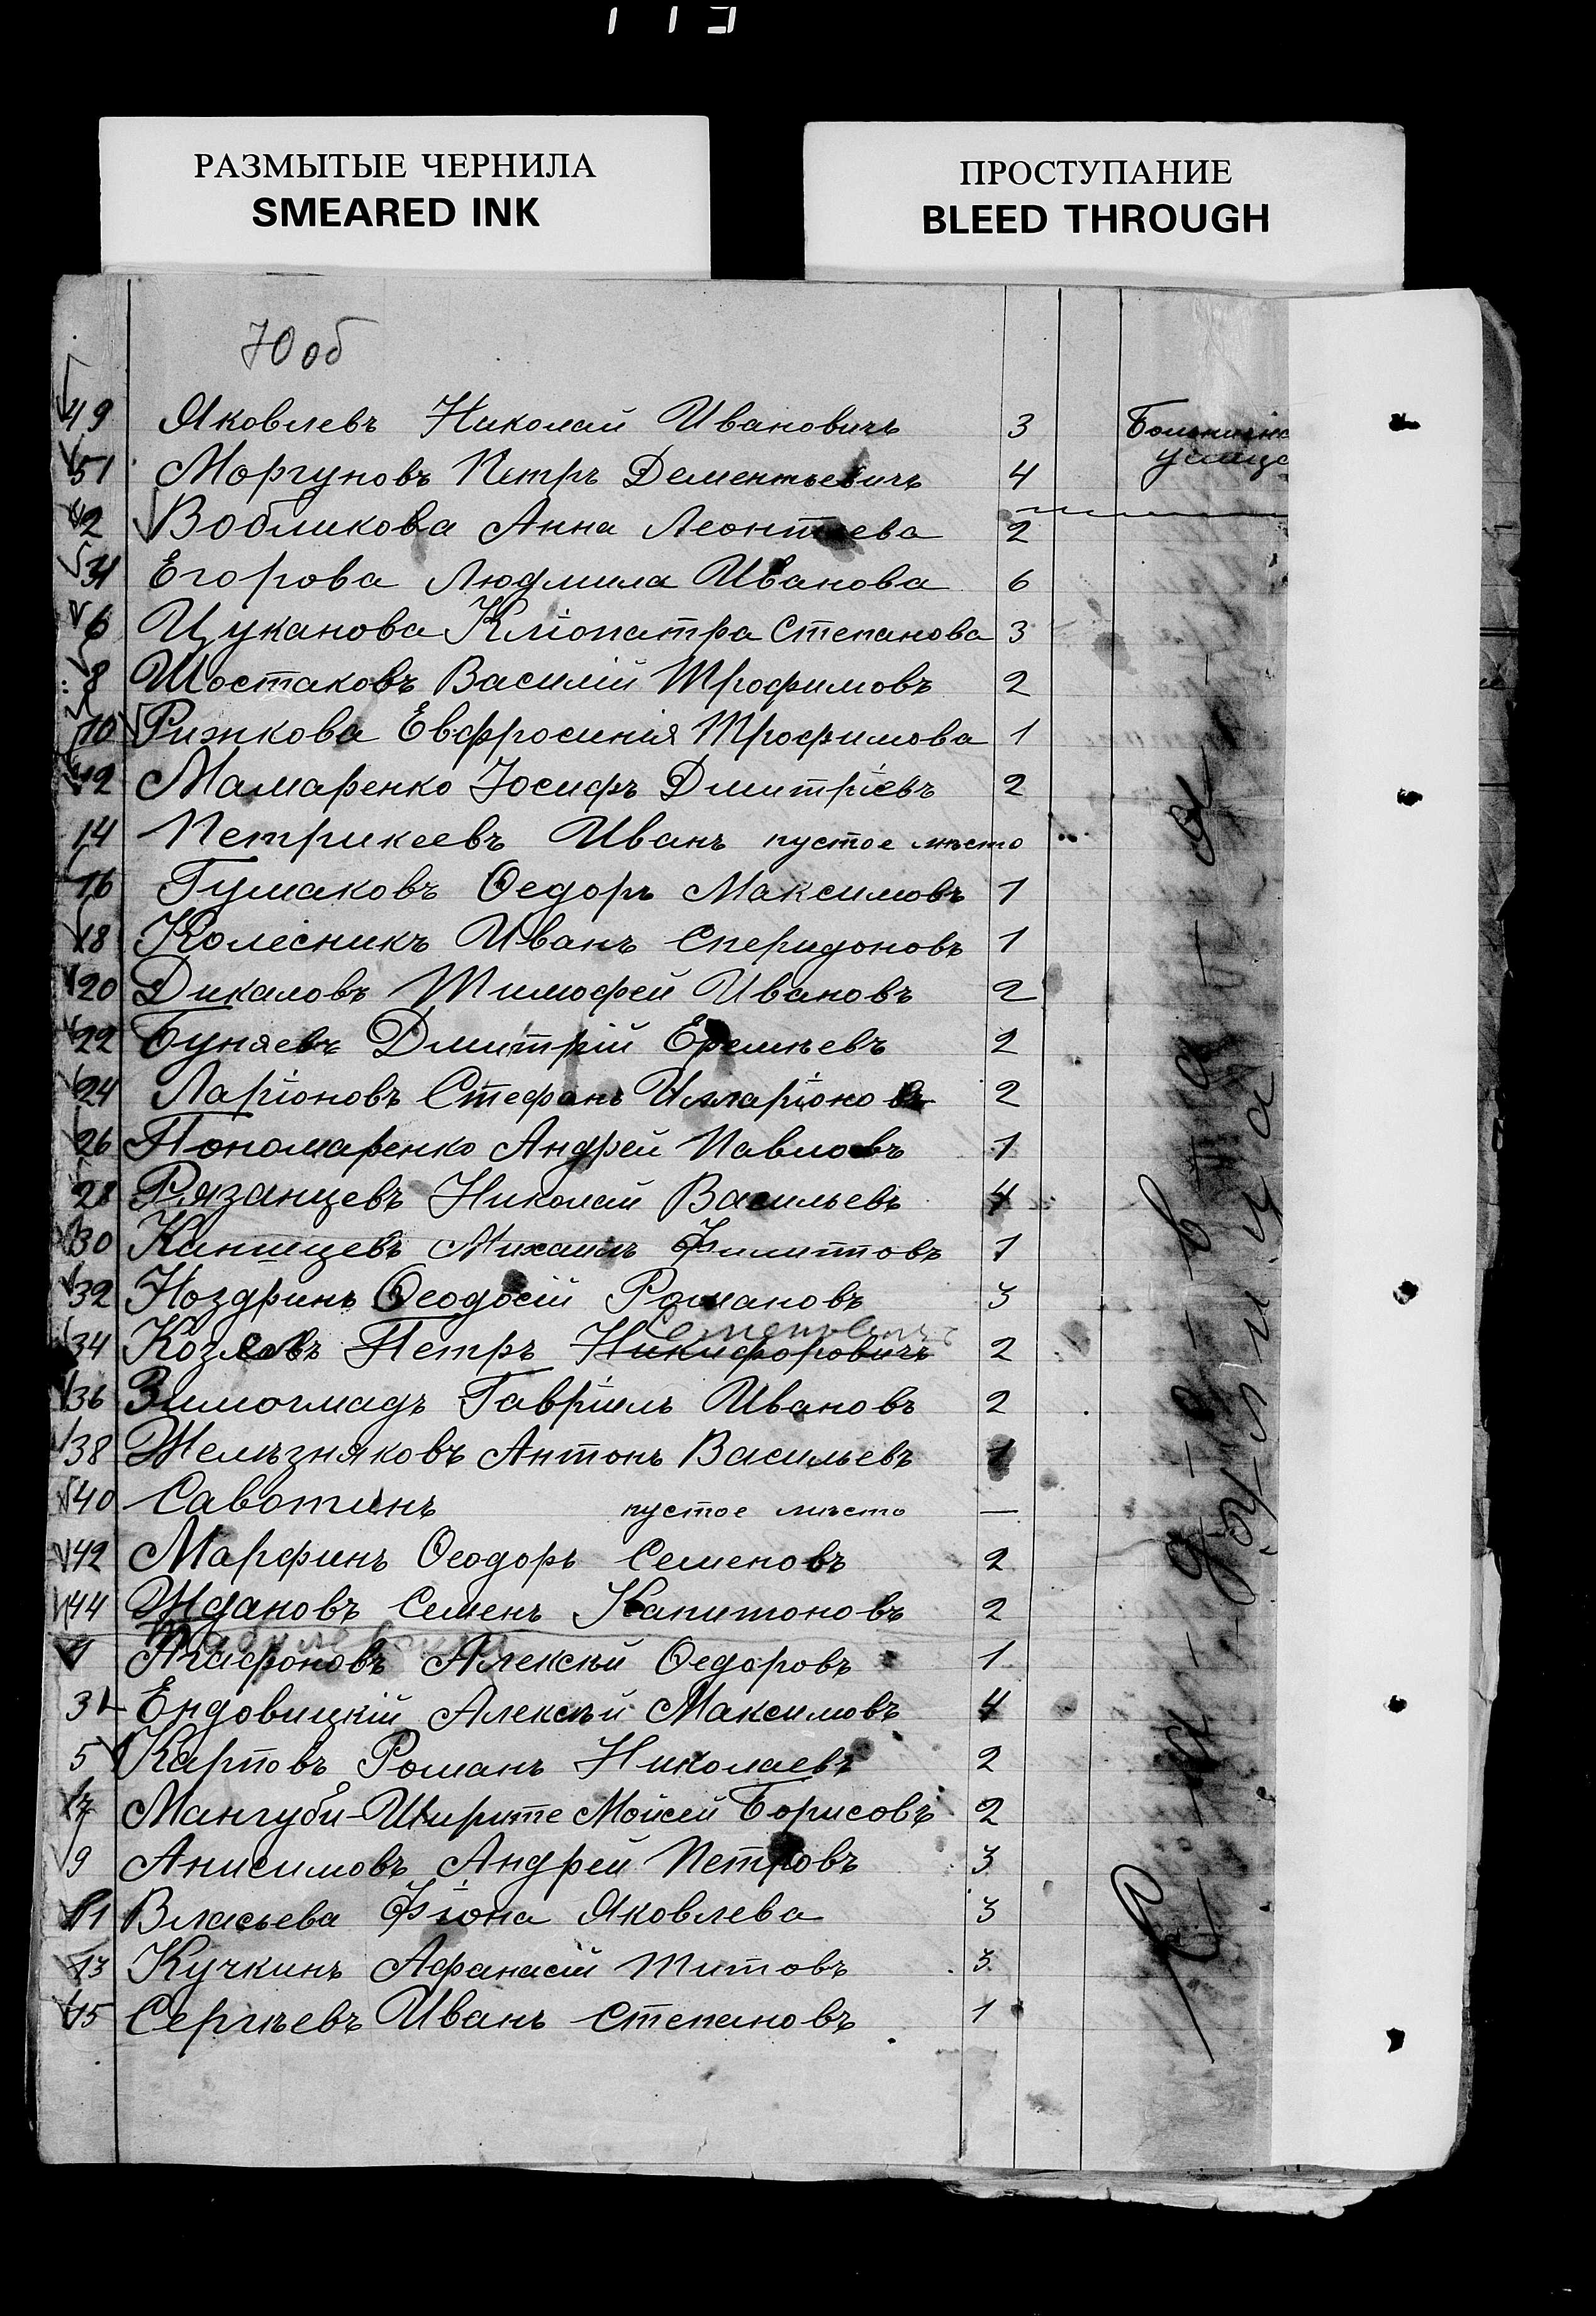 113
РАЗМЫТЫЕ ЧЕРНИЛА
SMEARED INK
ПРОСТУПАНИЕ
BLEED THROUGH
70 об
49 Яковлевъ Николай Ивановичъ 3 Больнична
улица
51 Моргуновъ Петръ Дементьевичъ 4
2 Вобликова Анна Леонтьева 2
Егорова Людмила Иванова 6
6 Цуканова Кліопатра Степанова 3
8 Шостаковъ Василій Трофимовъ 2
10 Рижкова Евфросинія Трофимова 1
12 Мамаренко Іосифъ Дмитріевъ 2
14 Петрикеевъ Иванъ пустое мѣсто
16 Гумаковъ Ѳедоръ Максимовъ 1
18 Колесникъ Иванъ Сперидоновъ 1
20 Дикаловъ Тимофей Ивановъ 2
22 Буняевъ Дмитрій Еремѣевъ 2
24 Ларіоновъ Стефанъ Илларіоновъ 2
26 Пономаренко Андрей Павловъ 1
28 Рязанцевъ Николай Васильевъ 4
30 Канищевъ Михаилъ Филиповъ 1
32 Ноздринъ Ѳеодосій Романовъ 3
Семеновичъ
34 Козловъ Петръ Никифоровичъ 2
36 Зимогладъ Гавріилъ Ивановъ 2
38 Желѣзняковъ Антонъ Васильевъ 1
40 Саботинъ пустое мѣсто —
42 Марфинъ Ѳеодоръ Семеновъ 2
44 Ждановъ Семенъ Капитоновъ 2
1 Агафоновъ Алексѣй Ѳедоровъ 1
3 Ендовицкій Алексѣй Максимовъ 4
5 Карповъ Романъ Николаевъ 2
7 Мангуби-Ширите Мойсей Борисовъ 2
9 Анисимовъ Андрей Петровъ 3
11 Власьева Фіона Яковлева 3
13 Кучкинъ Афанасій Титовъ 3
15 Сергѣевъ Иванъ Степановъ 1
улица